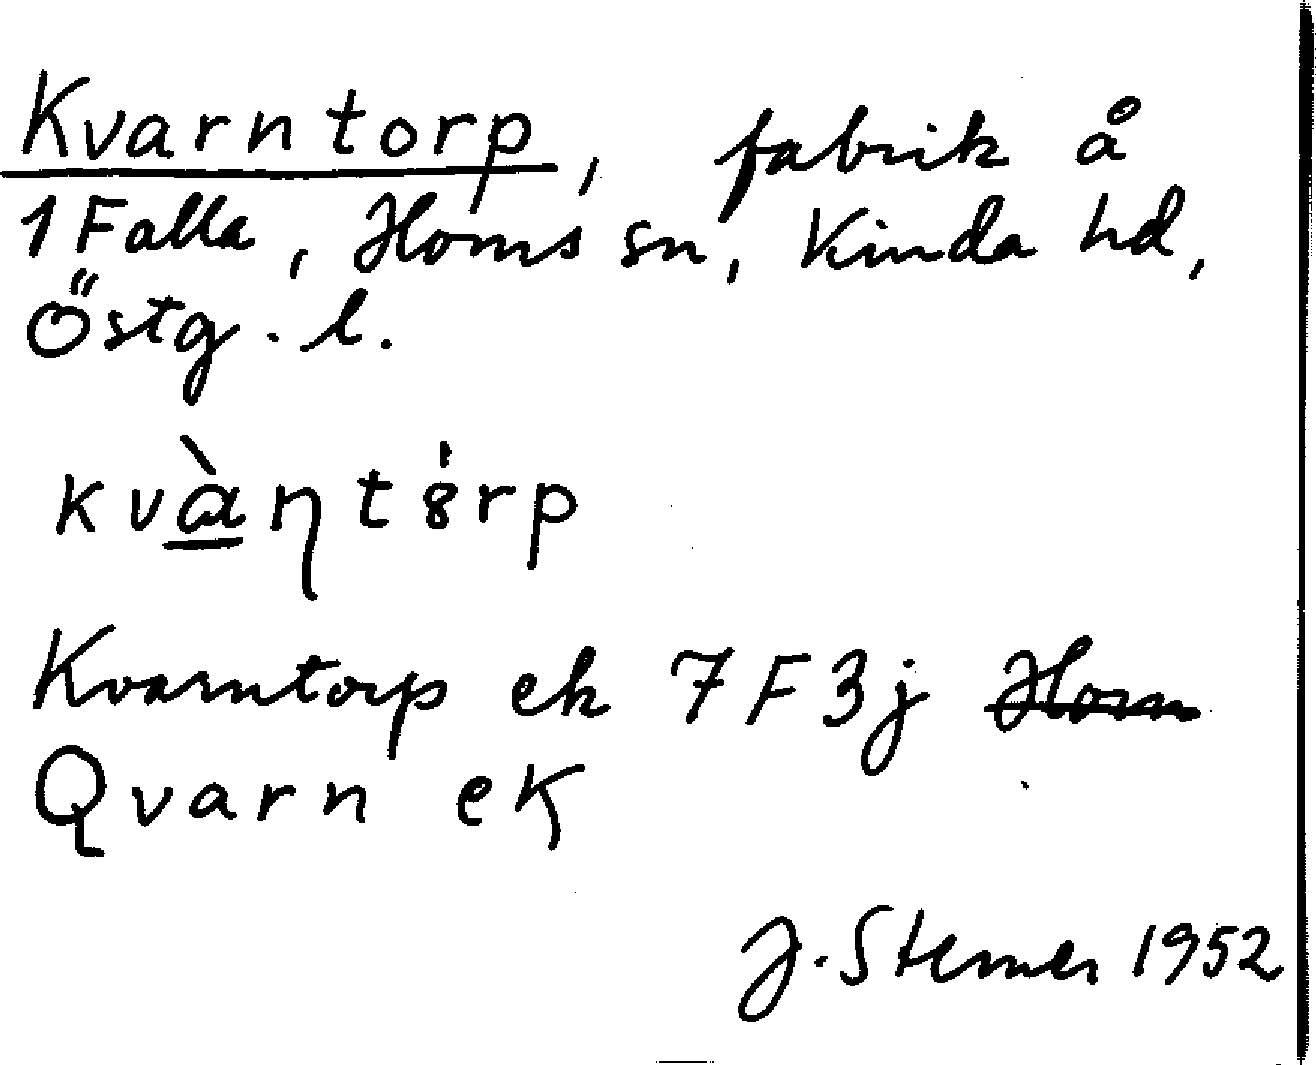 Kvarntorp, fabrik å
1 Falla, Horns sn, Kinda hd,
Östg. l.
kvàɳtȣ̍rp
Kvarntorp ek 7F3j Horn
Qvarn ek
J. Sterner 1952